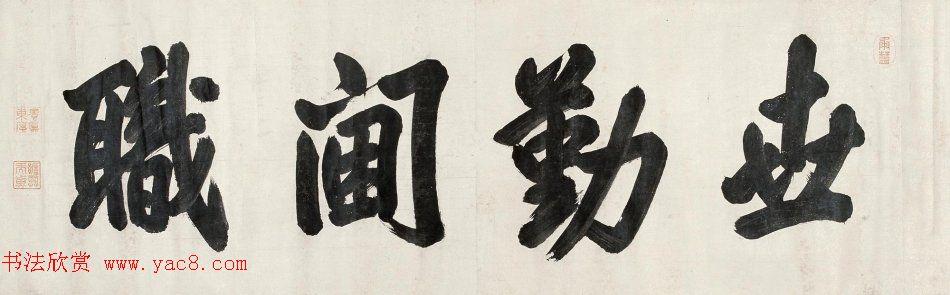 世勤閫職
书法欣赏 www.yac8.com